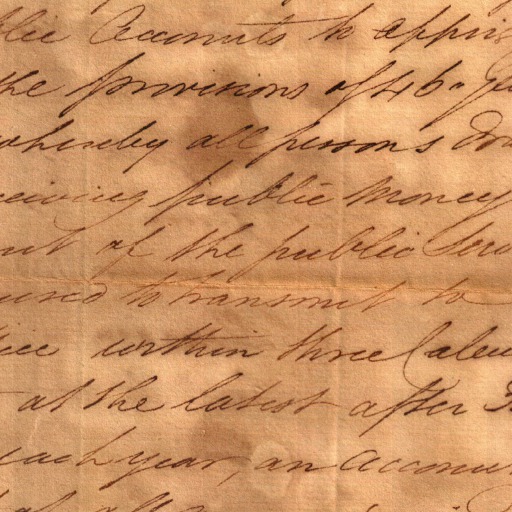 blic Accounts to appris
the provisions of 46º Ge
whereby all persons
ceiving public Money
of the public Ser
to transmit to
within three Calen
at the latest after
each year, an Accoun